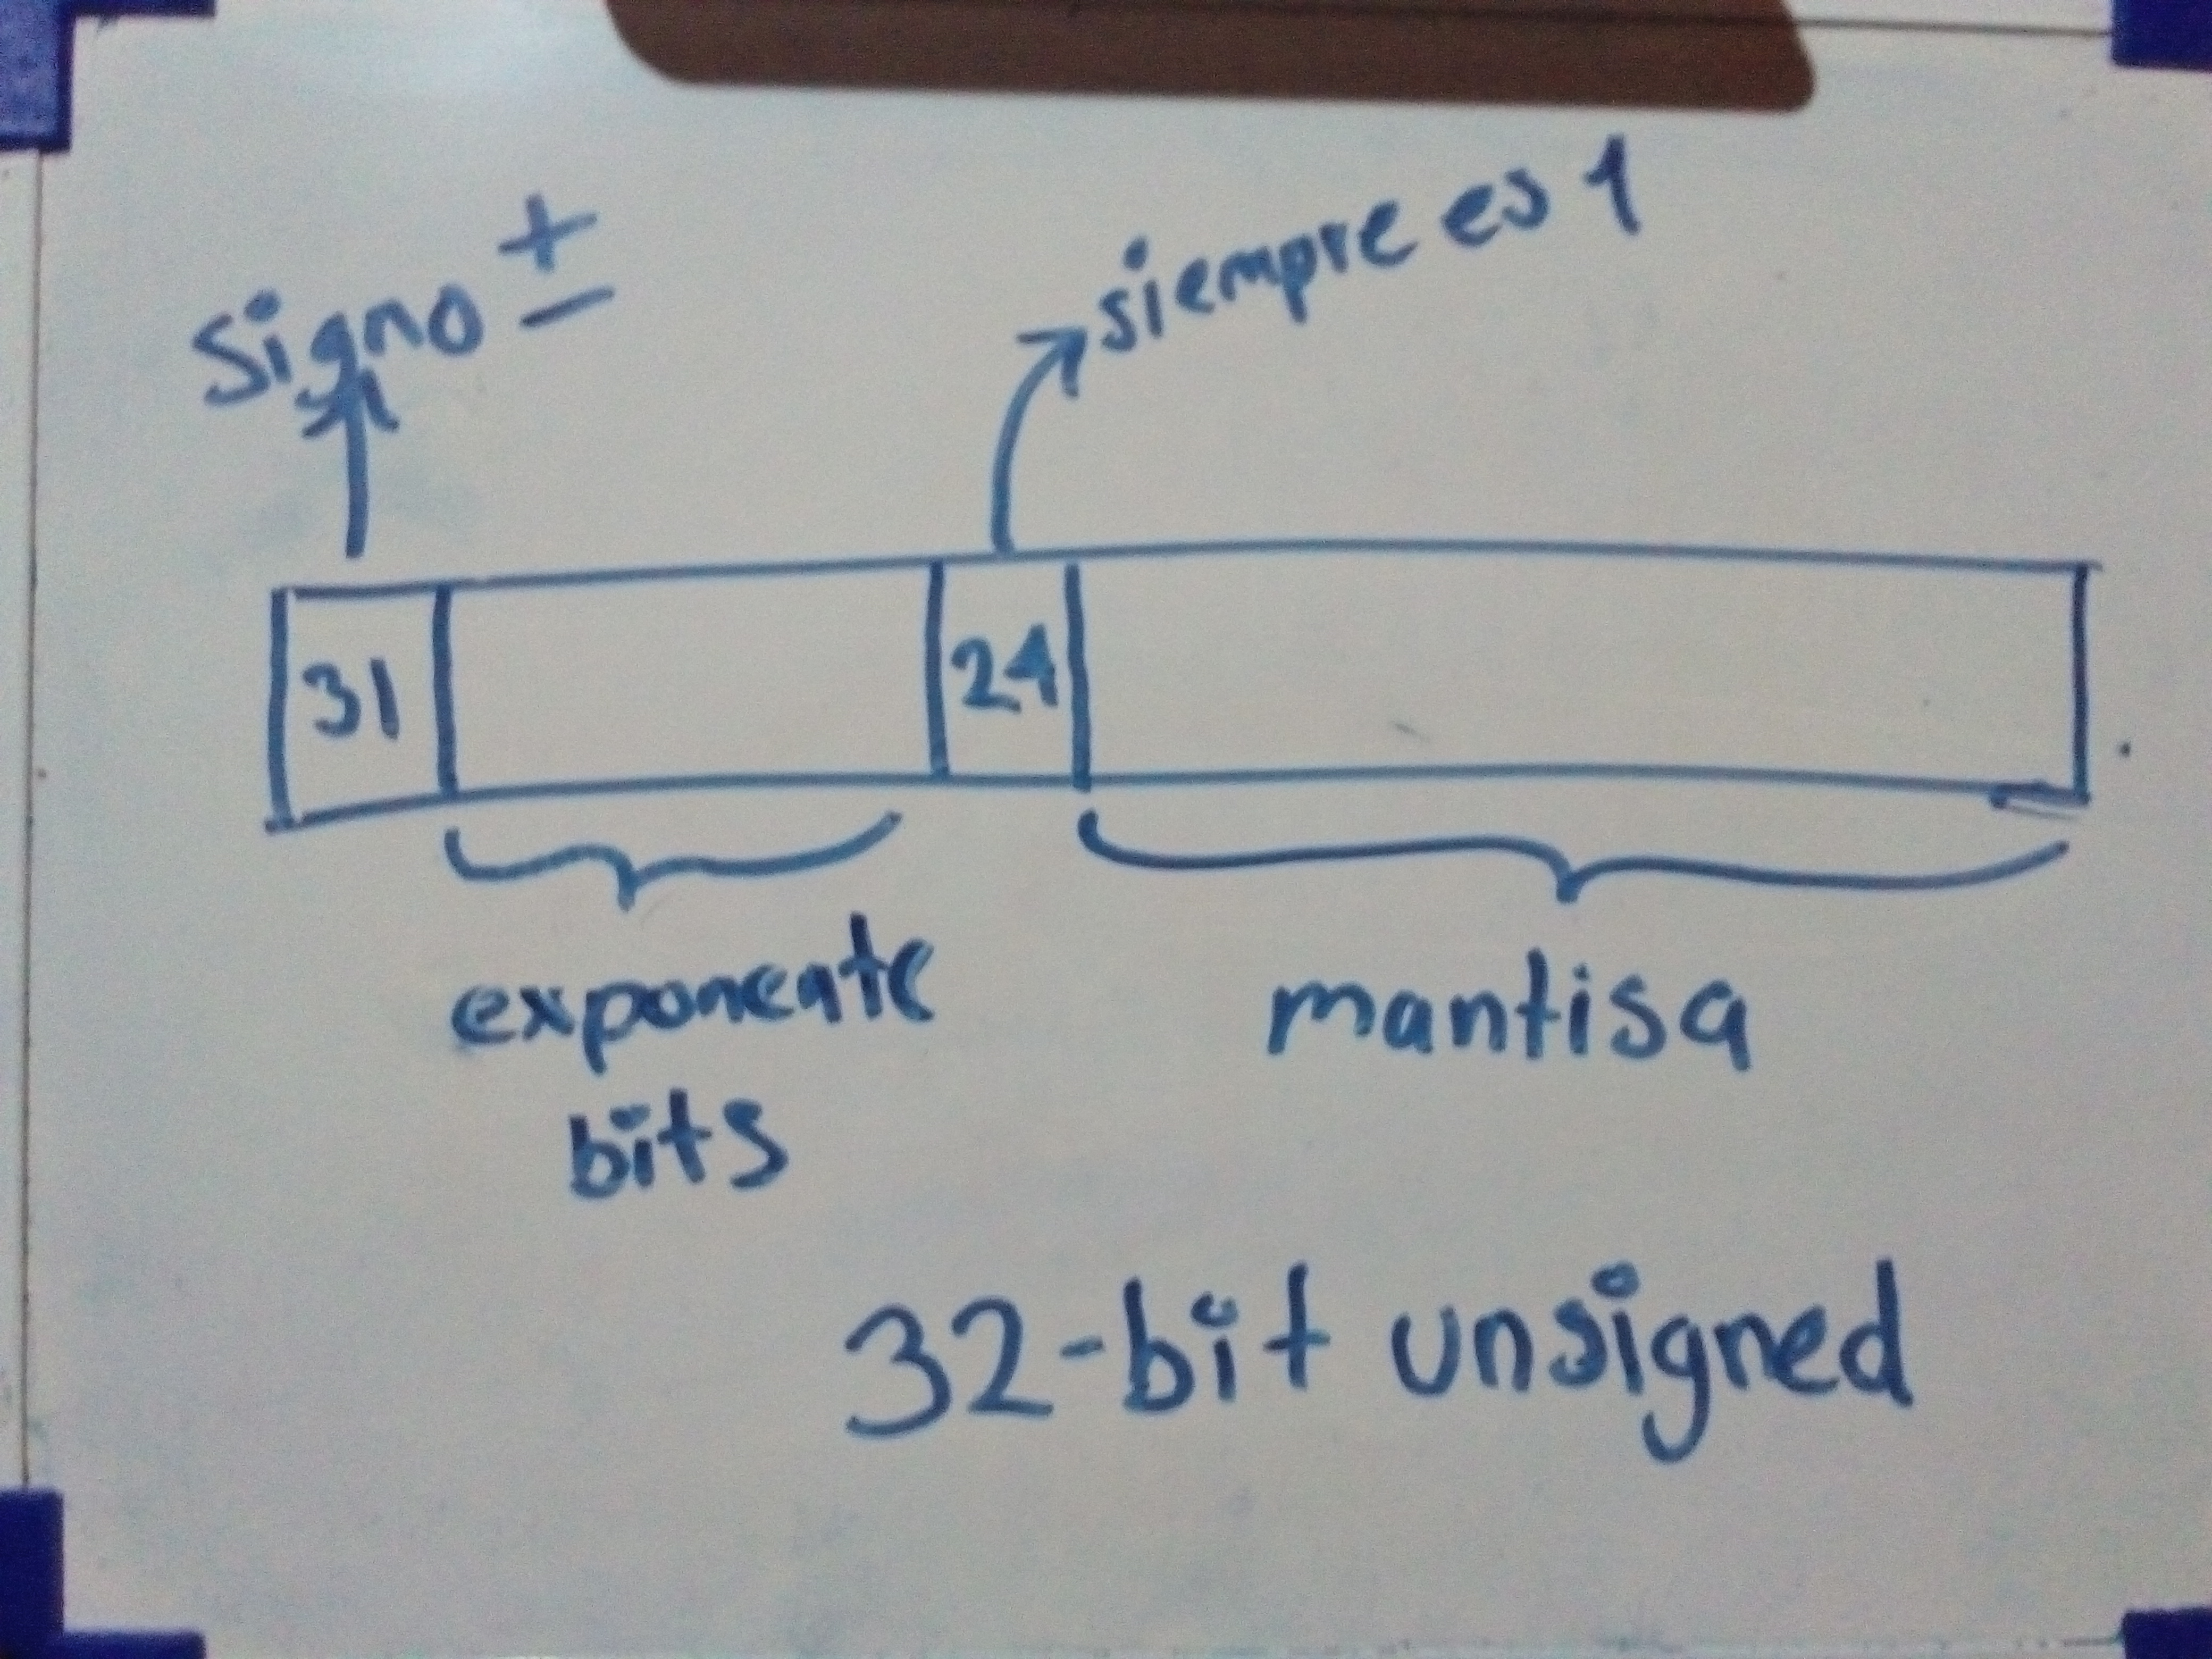 Signo ±
siempre es 1
31
24
exponente
bits
mantisa
32-bit unsigned